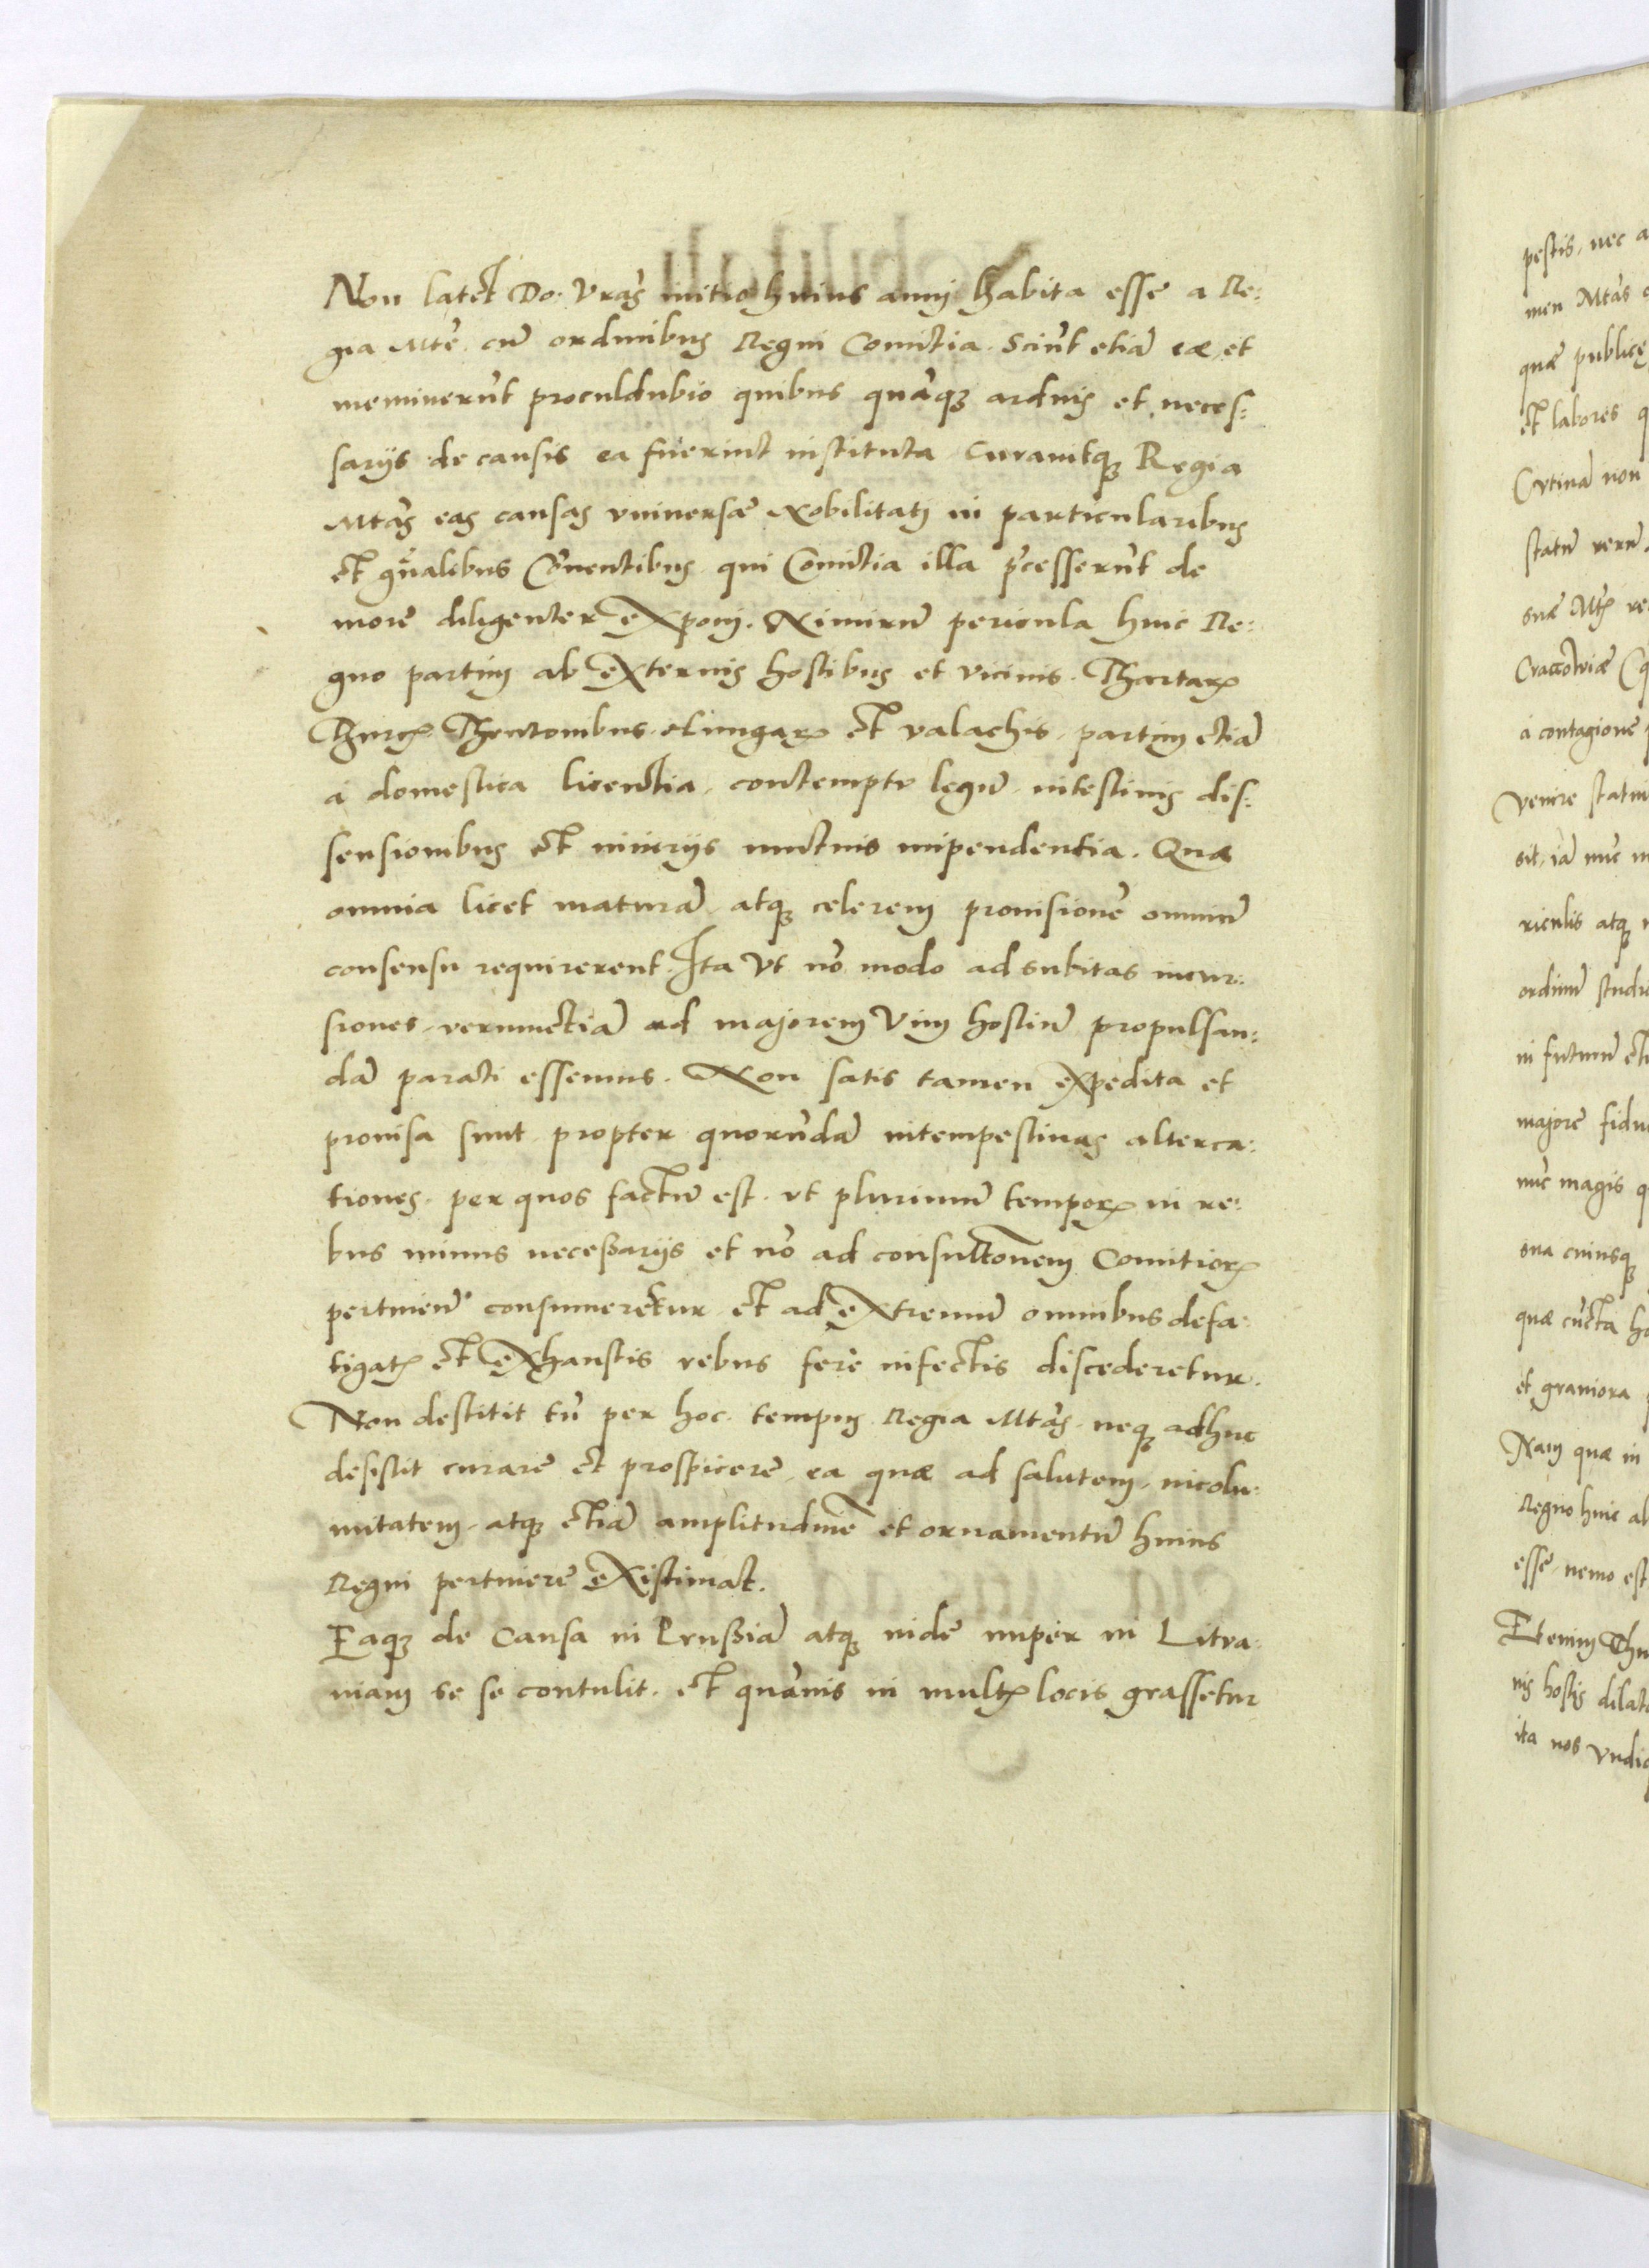 Non latet Do: Vras initio huius anni habita esse a Re:
gia Mte. cũ ordinibus Regni Comitia. Sciũt etiã eæ, et
meminerũt proculdubio quibus quamq; arduis et neces:
sarijs de causis ea fuerint instituta. Curauitq; Regia
Mtas eas causas vniuersæ Nobilitati in particularibus
et gñalibus Cõuentibus qui Comitia illa p̃cesserũt de
more diligenter exponi. Nimirũ pericula huic Re:
gno partim ab externis hostibus et vicinis. Thartaris
Thurcis Theutonibus et Valachis, partim etiã
a domestica licentia, contemptu legũ, intestinis dis:
sensionibus et iniurijs mutuis impendentia. Quæ
omnia licet maturã atq; celerem prouisionẽ omniũ
consensu requirerent. Ita Vt nõ modo ad subitas incur:
siones, verumetiã ad majorem Vim hostiũ propulsan:
dã parati essemus. Non satis tamen expedita et
prouisa sunt propter quorũdã intempestiuas alterca:
tiones, per quos factũ est, vt plurimũ temporis in re:
bus minus necessarijs et nõ ad consultationem Comitiorũ
pertinen̄ consumeretur et ad extremũ omnibus defa:
tigatis et exhaustis rebus ferè infectis discederetur.
Non destitit tñ per hoc tempus Regia Mtas, neq; adhuc
desistit curare et prospicere, ea quæ ad salutem, incolu:
mitatem, atq; etiã amplitudinẽ et ornamentũ huius
Regni pertinere existimat.
Eaq; de Causa in Prussiã atq; indẽ nuper in Litua:
niam se se contulit. et quãuis in multis locis grassetur
pestis, nec a
men Mtas
quæ publicę
et labores q
Cutinã non
statũ verũ
suæ Mtis re
Cracouiæ (q
a contagione
venire statu
sit, iã nũc
riculis atq;
ordinũ studi
in futurũ et
majorẽ fidu
nũc magis q
sua cuiusq;
quæ cũcta ha
et grauiora
Nam quæ in
Regno huic ab
esse, nemo est
Etenim Thu
nis hostis dilat
ita nos vndiq